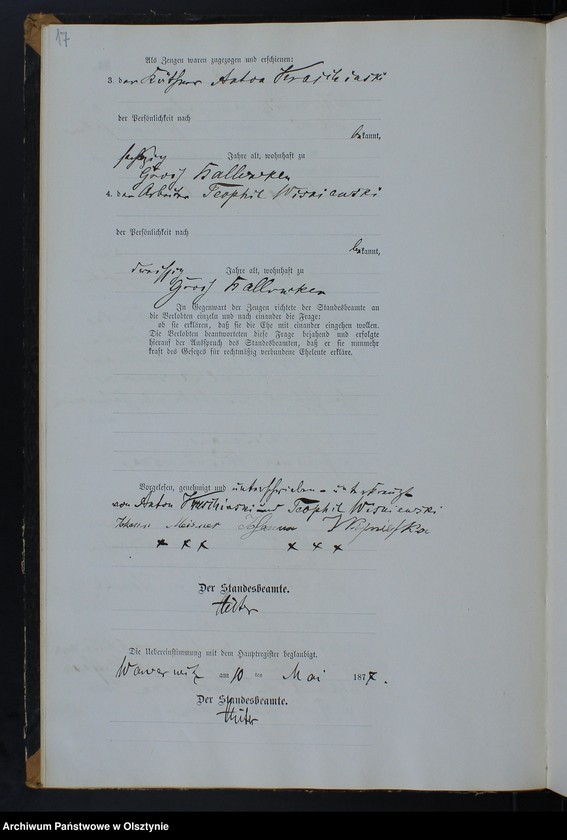 17
Als Zeugen waren zugezogen und erschienen:
3. der Käthner Anton
der Persönlichkeit nach
bekannt,
sechzig Jahre alt, wohnhaft zu
Groß
4. der Arbeiter Teophil Wisniewski
der Persönlichkeit nach
bekannt,
dreißig Jahre alt, wohnhaft zu
Groß
In Gegenwart der Zeugen richtete der Standesbeamte an
die Verlobten einzeln und nach einander die Frage:
ob sie erklären, daß sie die Ehe mit einander eingehen wollen.
Die Verlobten beantworteten diese Frage bejahend und erfolgte
hierauf der Ausspruch des Standesbeamten, daß er sie nunmehr
kraft des Gesetzes für rechtmäßig verbundene Eheleute erkläre.
Vorgelesen, genehmigt und unterschrieben - unterkreuzt
von Anton und Teophil Wisniewski
Johann Johanna
x x x x x x
Der Standesbeamte.
Die Uebereinstimmung mit dem Hauptregister beglaubigt.
am 10 ten Mai 1877.
Der Standesbeamte.
Archiwum Państwowe w Olsztynie